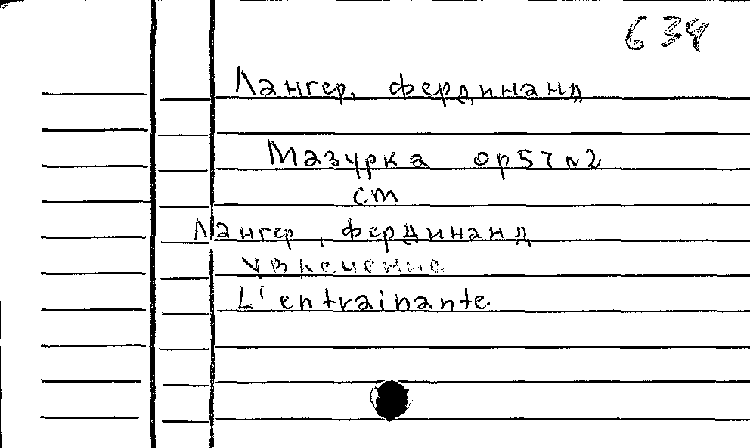 634
Лангер, Фердинанд
Мазурка op57 n2
см
Лангер, Фердинанд
Увлечение
L'entrainante